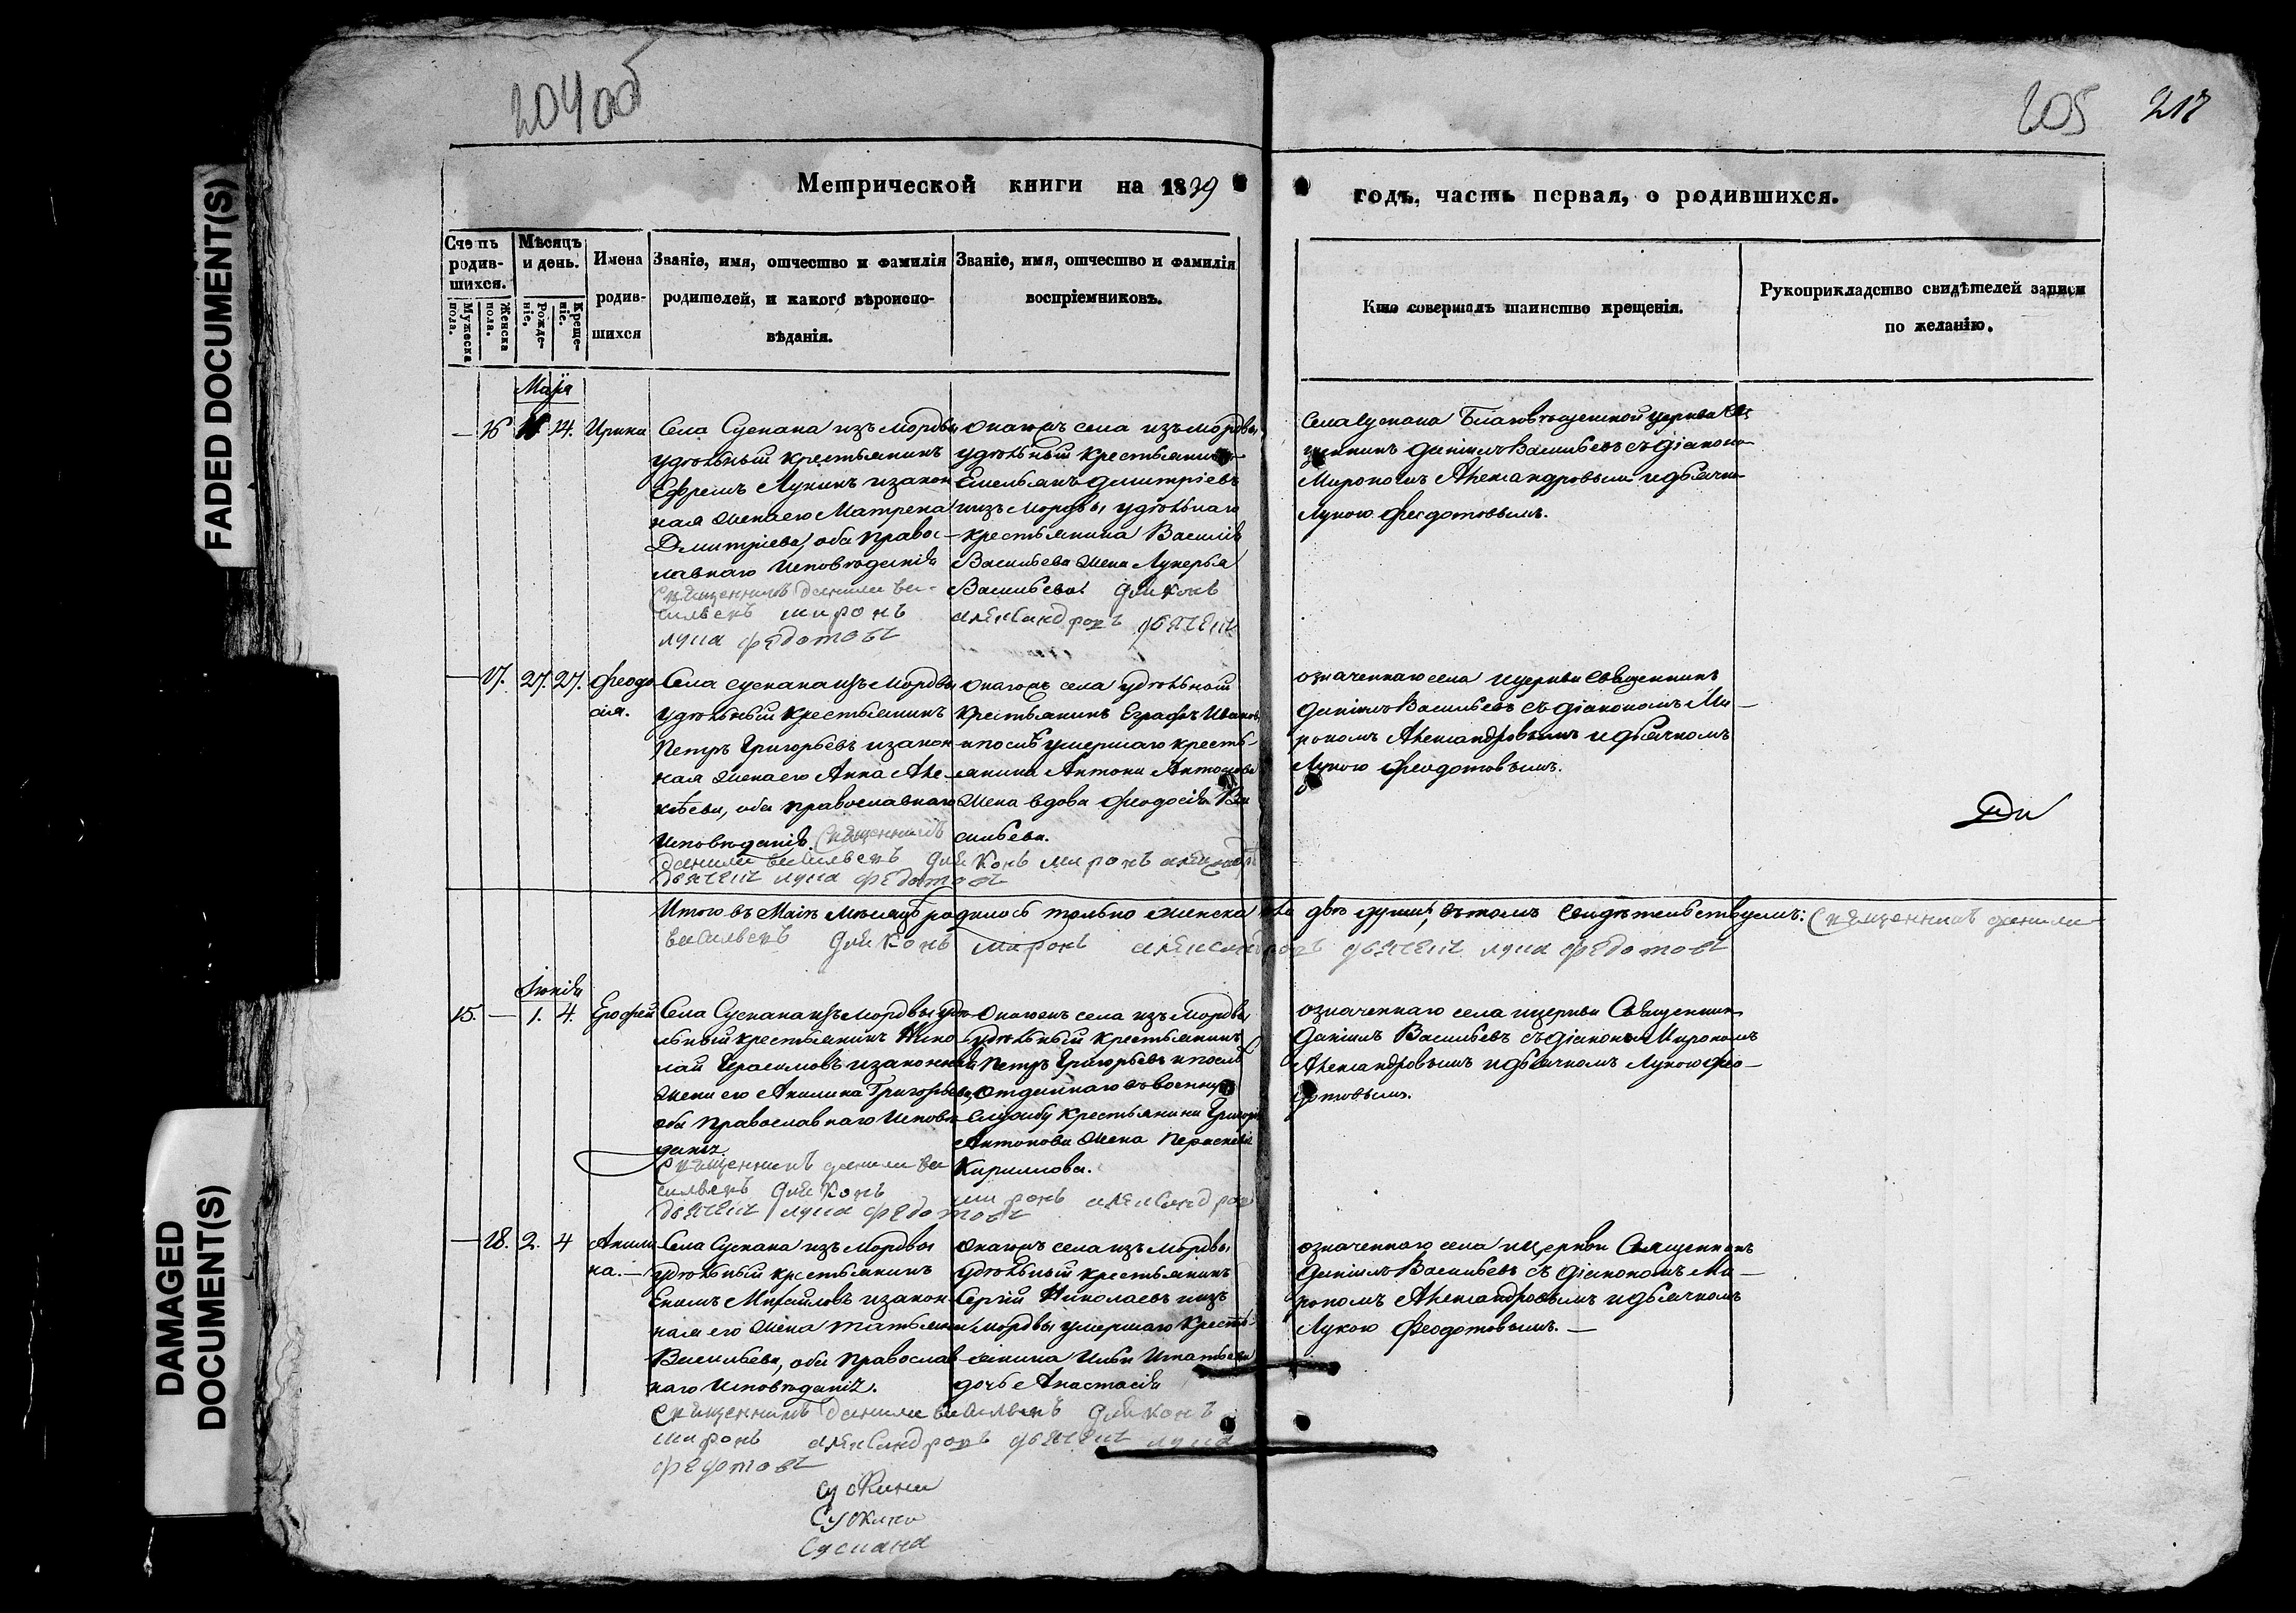 FADED DOCUMENT(S)
DAMAGED
DOCUMENT(S)
204об
205 217
Метрической книги на 1839
годъ, часть первая, о родившихся.
Счетъ родив-шихся.
Мужеска пола.
Женска пола.
Мѣсяцъ и день.
Рожде-ніе.
Креще-ніе.
Имена родив-шихся
Званіе, имя, отчество и фамилія
родителей, и какого вѣроиспо-
вѣданія.
Званіе, имя, отчество и фамилія
воспріемниковъ.
Кто совершалъ таинство крещенія.
Рукоприкладство свидѣтелей записи
по желанію.
Маія
— 16 14. Ирина
Села Сускана изъ мордвы
удѣльный крестьянинъ
Ефремъ Лукинъ и закон
ная жена его Матрена
Дмитріева, оба правос-
лавнаго исповѣданія
священникъ данила ва-
сильевъ миронъ
лука федотовъ
Онагожъ села изъ мордвы
удѣльный крестьянинъ
Емельянъ Димитріевъ
и изъ мордвы удѣльнаго
крестьянина Василія
Васильева жена Лукерья
Васильева. диаконъ
александровъ дьячекъ
села Сускана Благовѣщенской церкви Свя
щенникъ Даніилъ Васильевъ съ діакономъ
Мирономъ Александровымъ и дьячко
Лукою Феодотовымъ.
— 17. 27. 27. Феодо
сія.
Села Сускана изъ мордвы
удѣльный крестьянинъ
Петръ Григорьевъ и закон
ная жена его Анна Але-
ксѣева, оба православнаго
исповѣданія. священникъ
данила васильевъ диаконъ миронъ
дьячекъ лука федотовъ
Онагожъ села удѣльной
крестьянинъ Еграфъ Ивановъ
и послѣ умершаго кресть-
янина Антона Антонова
жена вдова Феодосія Ва
сильева.
означеннаго села и церкви священникъ
Даніилъ Васильевъ съ діакономъ Ми-
рономъ Александровымъ и дьячкомъ
Лукою Феодотовымъ.
Итого въ Маіѣ мѣсяцѣ родилось только женска пола двѣ души, въ томъ свидѣтельствуемъ: священникъ данила
васильевъ диаконъ миронъ александровъ дьячекъ лука федотовъ
Іюнія
15. — 1. 4. Ерофей
Села Сускана изъ мордвы удѣ-
льный крестьянинъ Нико
лай Герасимовъ и законная
жена его Акилина Григорьева,
оба православнаго исповѣ
данія.
священникъ данила ва
сильевъ диаконъ
дьячекъ лука федотовъ
Онагожъ села изъ мордвы
удѣльный крестьянинъ
Петръ Григорьевъ и послѣ
отданнаго въ военную
службу крестьянина Григорія
Антонова жена Параскевія
Кирилова.
миронъ александров
означеннаго села и церкви Священникъ
Даніилъ Васильевъ съ діакономъ Мирономъ
Александровымъ и дьячкомъ Лукою Фео-
дотовымъ.
— 18. 2. 4 Акили
на. —
Села Сускана изъ мордвы
удѣльный крестьянинъ
Екимъ Михайловъ и закон
ная его жена Татьяна
Васильева, оба православ
наго исповѣданія.
священникъ данила васильевъ диаконъ
миронъ александровъ дьячекъ лука
федотовъ
Онагожъ села изъ мордвы
удѣльный крестьянинъ
Сергій Николаевъ и изъ
мордвы умершаго кресть-
янина Ильи Игнатьева
дочь Анастасія
означеннаго села и церкви Священникъ
Даніилъ Васильевъ съ діакономъ Ми-
рономъ Александровымъ и дьячкомъ
Лукою Феодотовымъ. —
Сускана